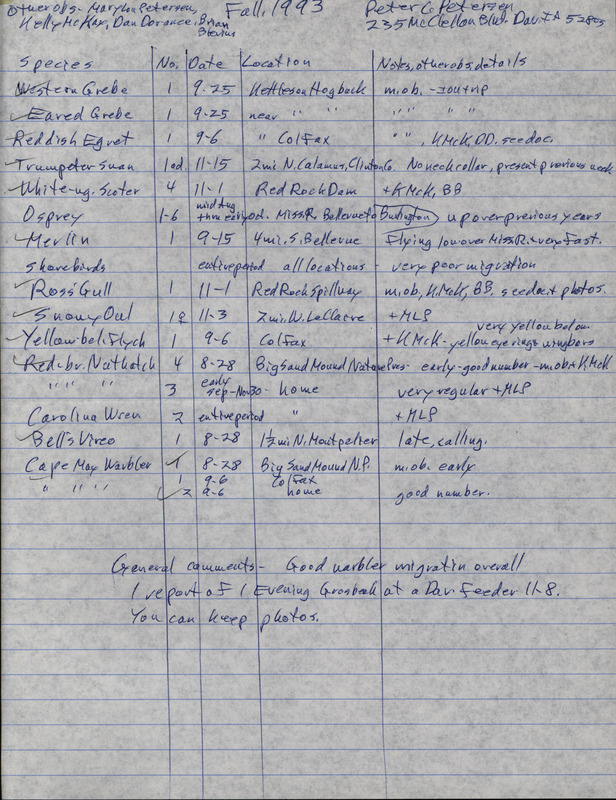 Other obs - Marylou Petersen, Fall, 1993 Peter C. Petersen
Kelly McKay, Dan Dorance, Brian 235 McClellan Blvd. Dav. IA 52803
Blevins
Species No. Date Location Notes, other obs, details
Western Grebe 1 9-25 Kettleson Hogback m.ob. - IOU trip
Eared Grebe 1 9-25 near " " " " " "
Reddish Egret 1 9-6 " Colfax " ", KMcK, DD. see doc.
Trumpeter Swan 1ad. 11-15 2mi N. Calamus, Clinton Co. No neck collar, present previous week
White-wg. Scoter 4 11-1 Red Rock Dam + KMcK, BB
Osprey 1-6 mid Aug thru early Oct. Miss R. Bellevue to Burlington up over previous years
Merlin 1 9-15 4 mi. S. Bellevue Flying low over Miss R. + very fast.
Shorebirds entire period all locations - very poor migration
Ross' Gull 1 11-1 Red Rock Spillway m.ob, KMcK, BB. see doc + photos.
Snowy Owl 1♀ 11-3 2 mi. W. LeClaire + MLP
Yellow-bel. Flych 1 9-6 Colfax + KMcK - yellow eyering & wingbars very yellow below
Red-br. Nuthatch 4 8-28 Big Sand Mound - early - good number - m.ob + KMcK
" " " 3 early Sep - Nov 30 - home very regular + MLP
Carolina Wren 2 entire period " + MLP
Bell's Vireo 1 8-28 1½ mi N. Montpelier late, calling.
Cape May Warbler 1 8-28 Big Sand Mound N.P. m.ob. early
" " " 1 9-6 Colfax
2 9-6 home good number.
General comments - Good warbler migratin overall
1 report of 1 Evening Grosbeak at a Dav. Feeder 11-8.
You can keep photos.